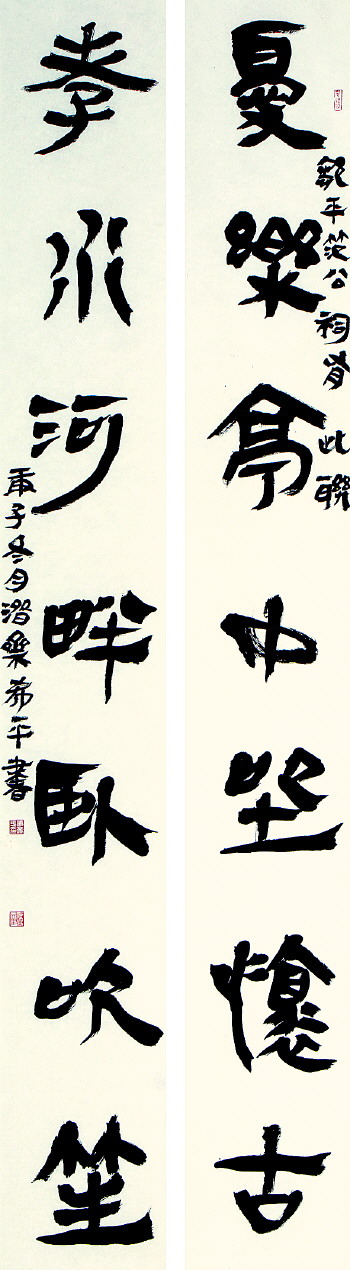 憂樂亭中坐懷古
鄒平范公祠有此聯
孝水河畔臥吹笙
庚子冬月潛樂希平書